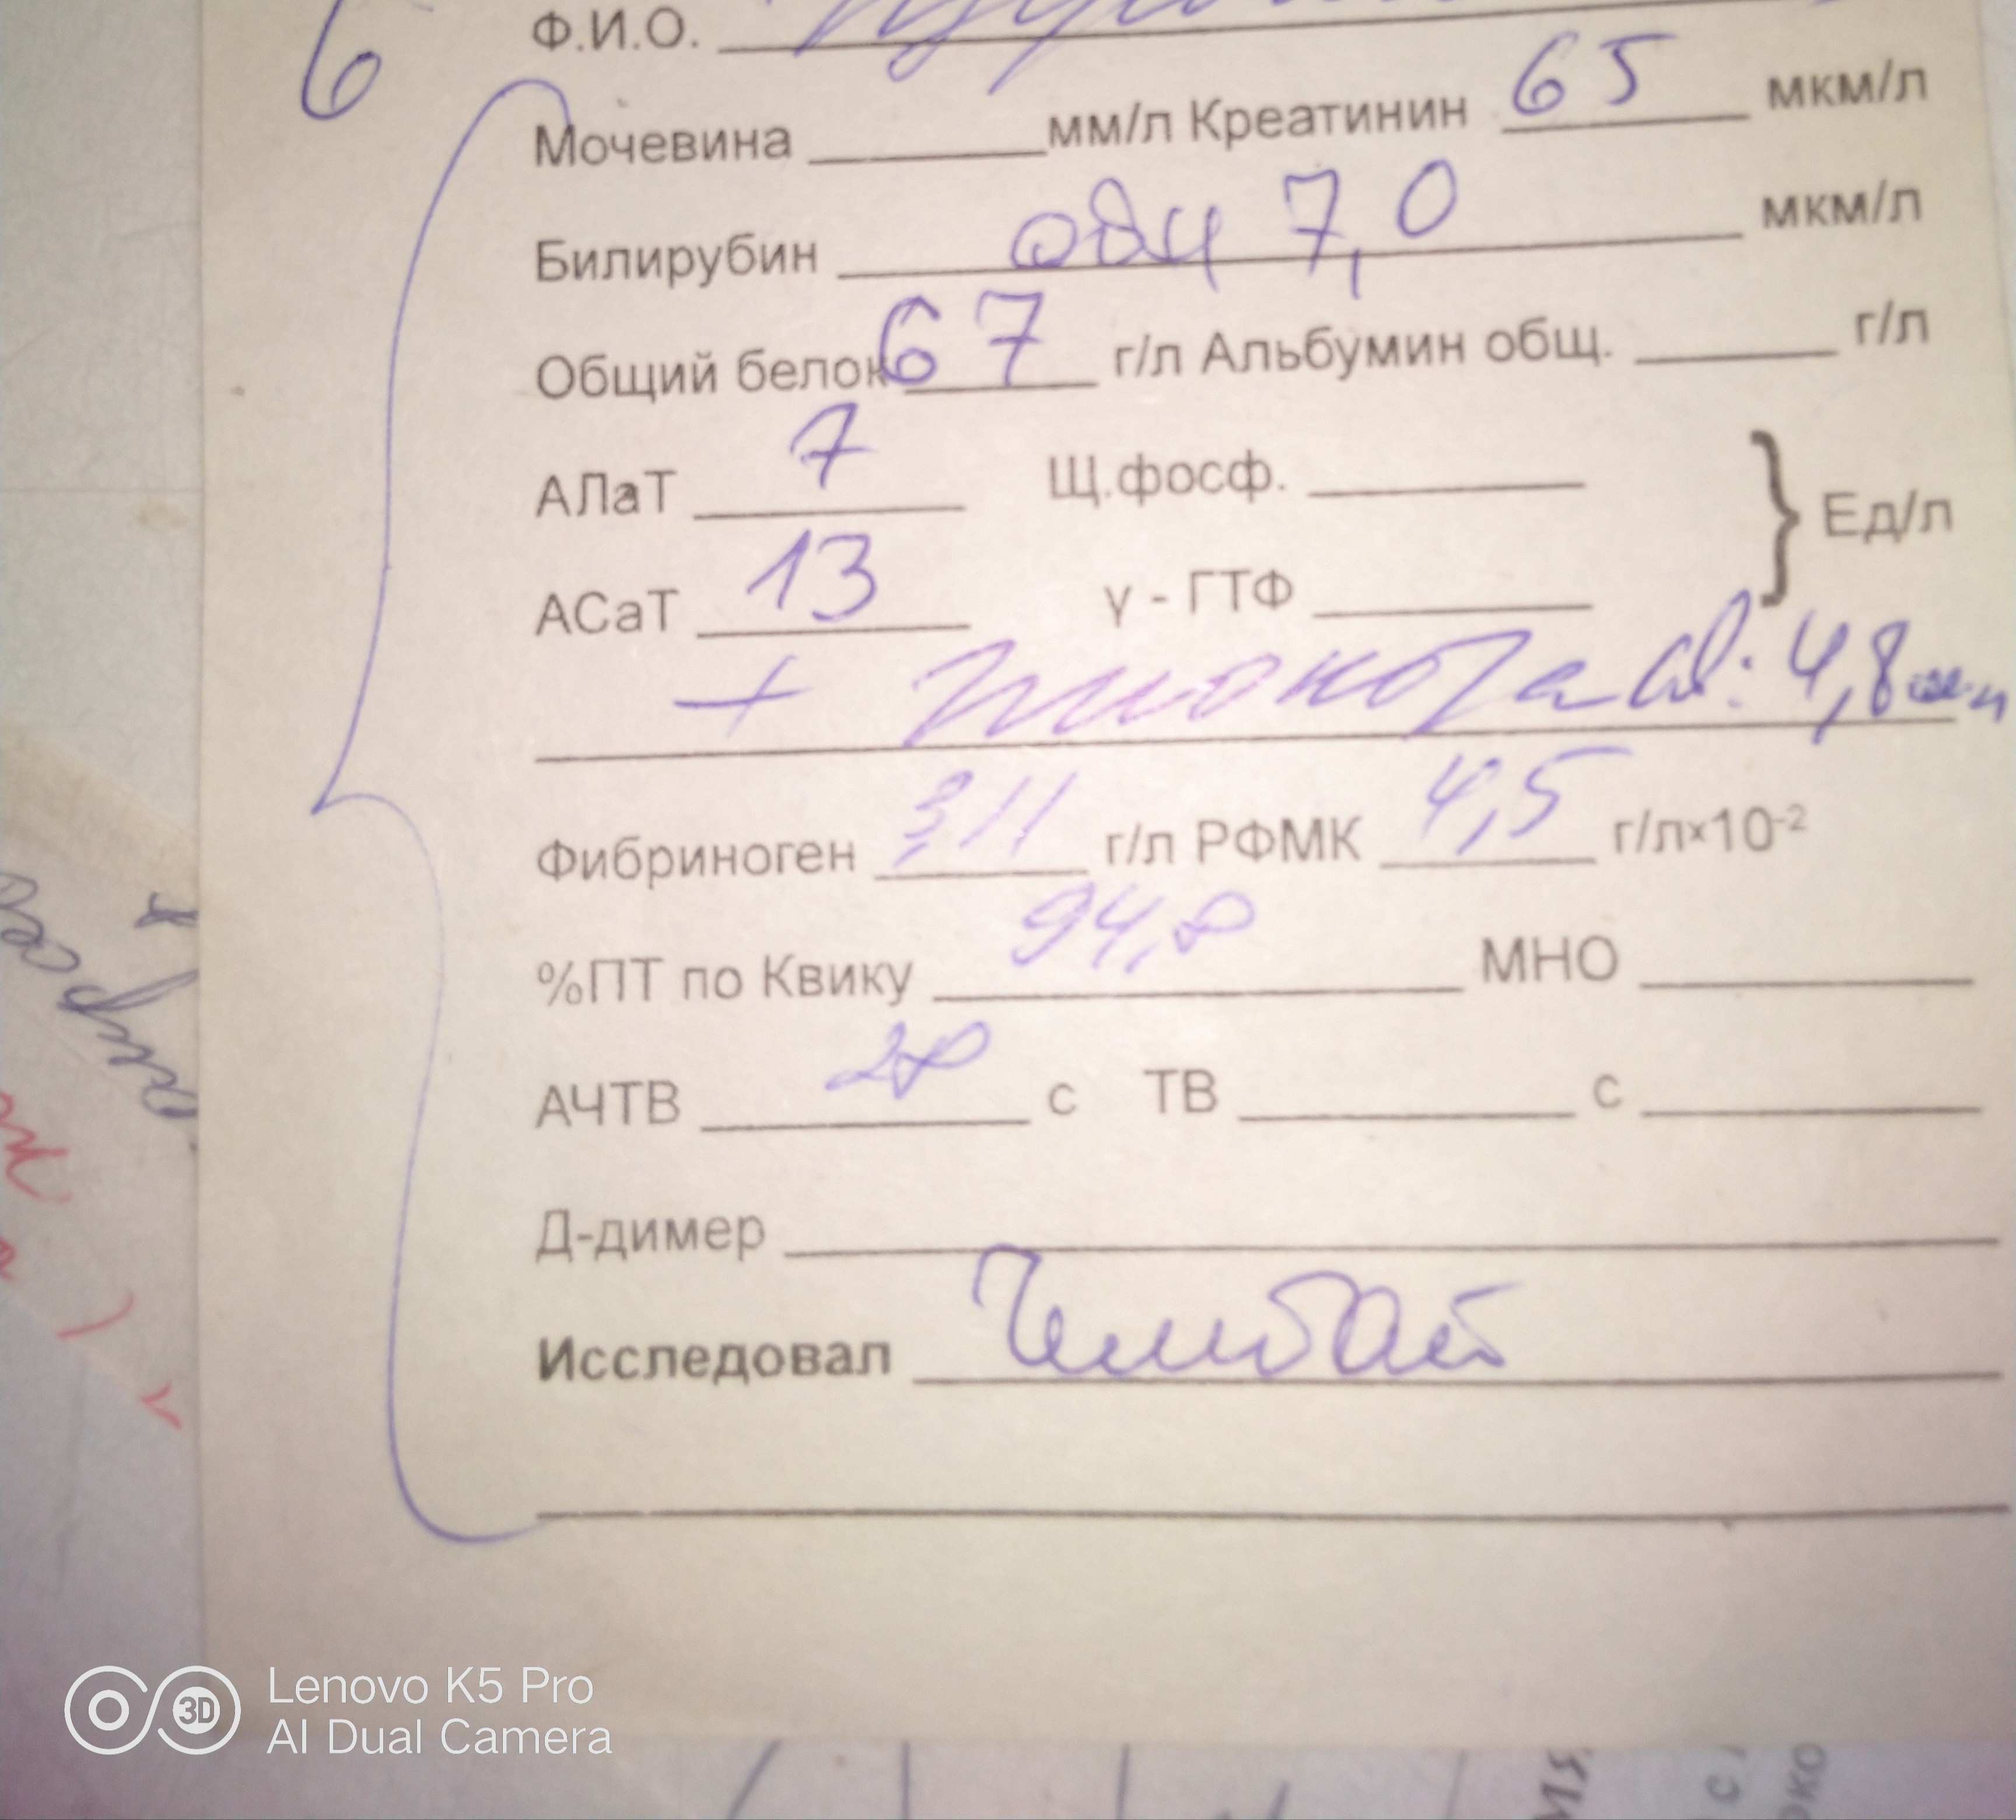 6
Ф.И.О.
Мочевина ______ мм/л Креатинин 65 мкм/л
Билирубин общ 7,0 мкм/л
Общий белок 67 г/л Альбумин общ. ______ г/л
АЛаТ 7 Щ.фосф. ______
АСаТ 13 γ - ГТФ ______ } Ед/л
+ глюкоза 4,8
Фибриноген 3,11 г/л РФМК 4,5 г/л×10⁻²
%ПТ по Квику 94,8 МНО ______
АЧТВ 28 с ТВ ______ с ______
Д-димер ______
Исследовал
Lenovo K5 Pro
3D
AI Dual Camera